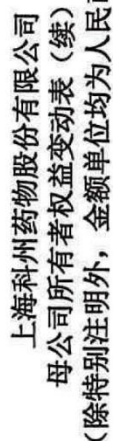 上海科州药物股份有限公司
母公司所有者权益变动表（续）
（除特别注明外，金额单位均为人民